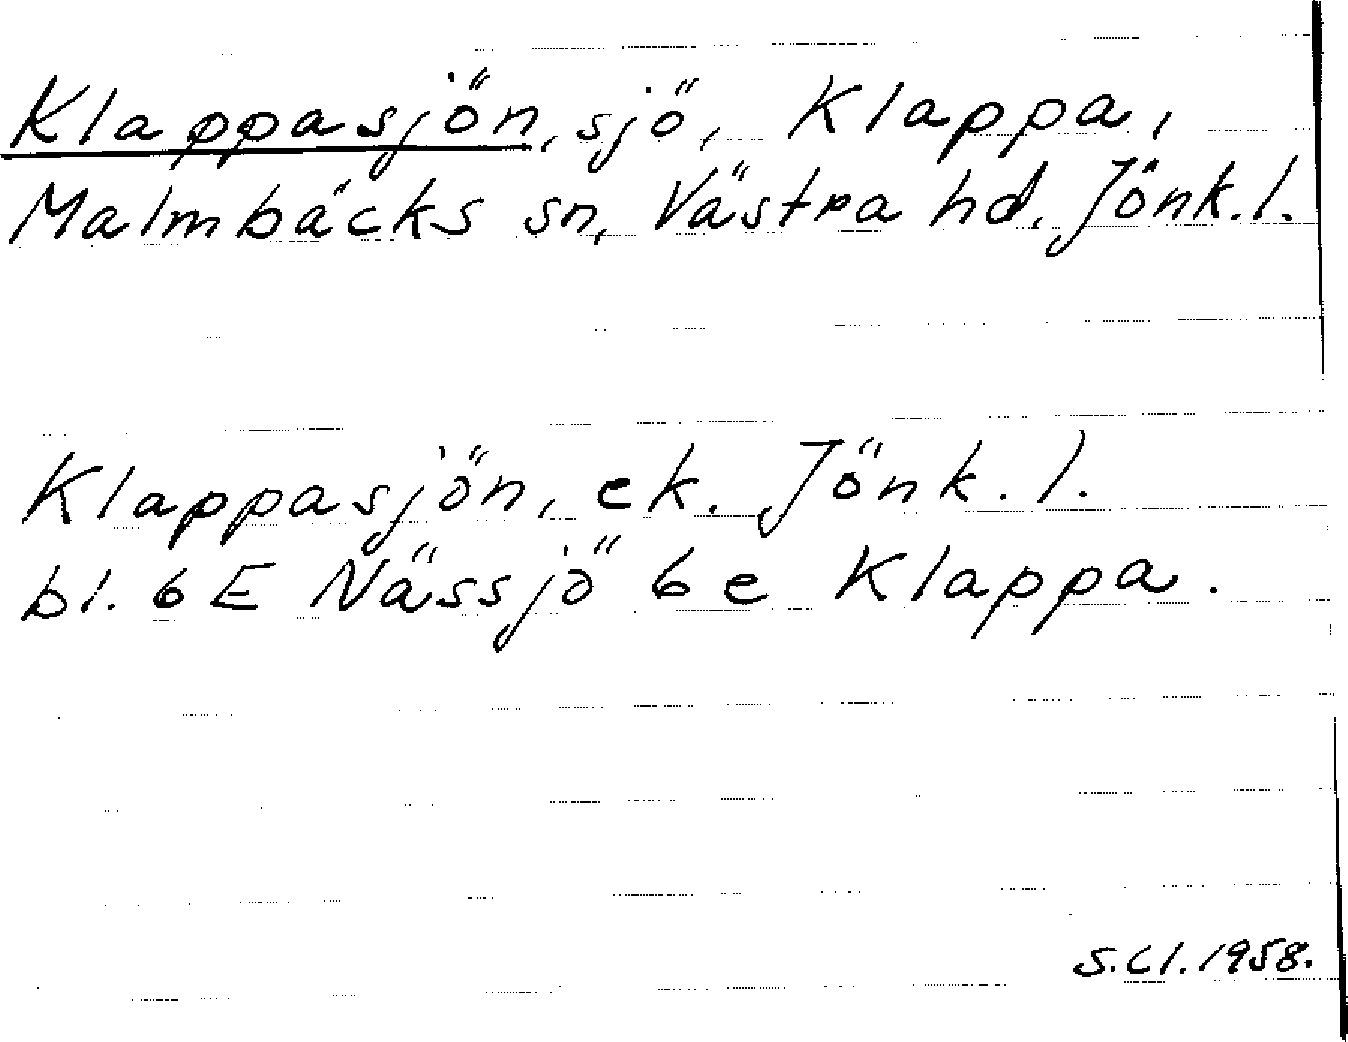 Klappasjön, sjö, Klappa,
Malmbäcks sn, Västra hd. Jönk.l.
Klappasjön, ek. Jönk.l.
bl. 6E Nässjö 6e Klappa.
S.Cl.1958.